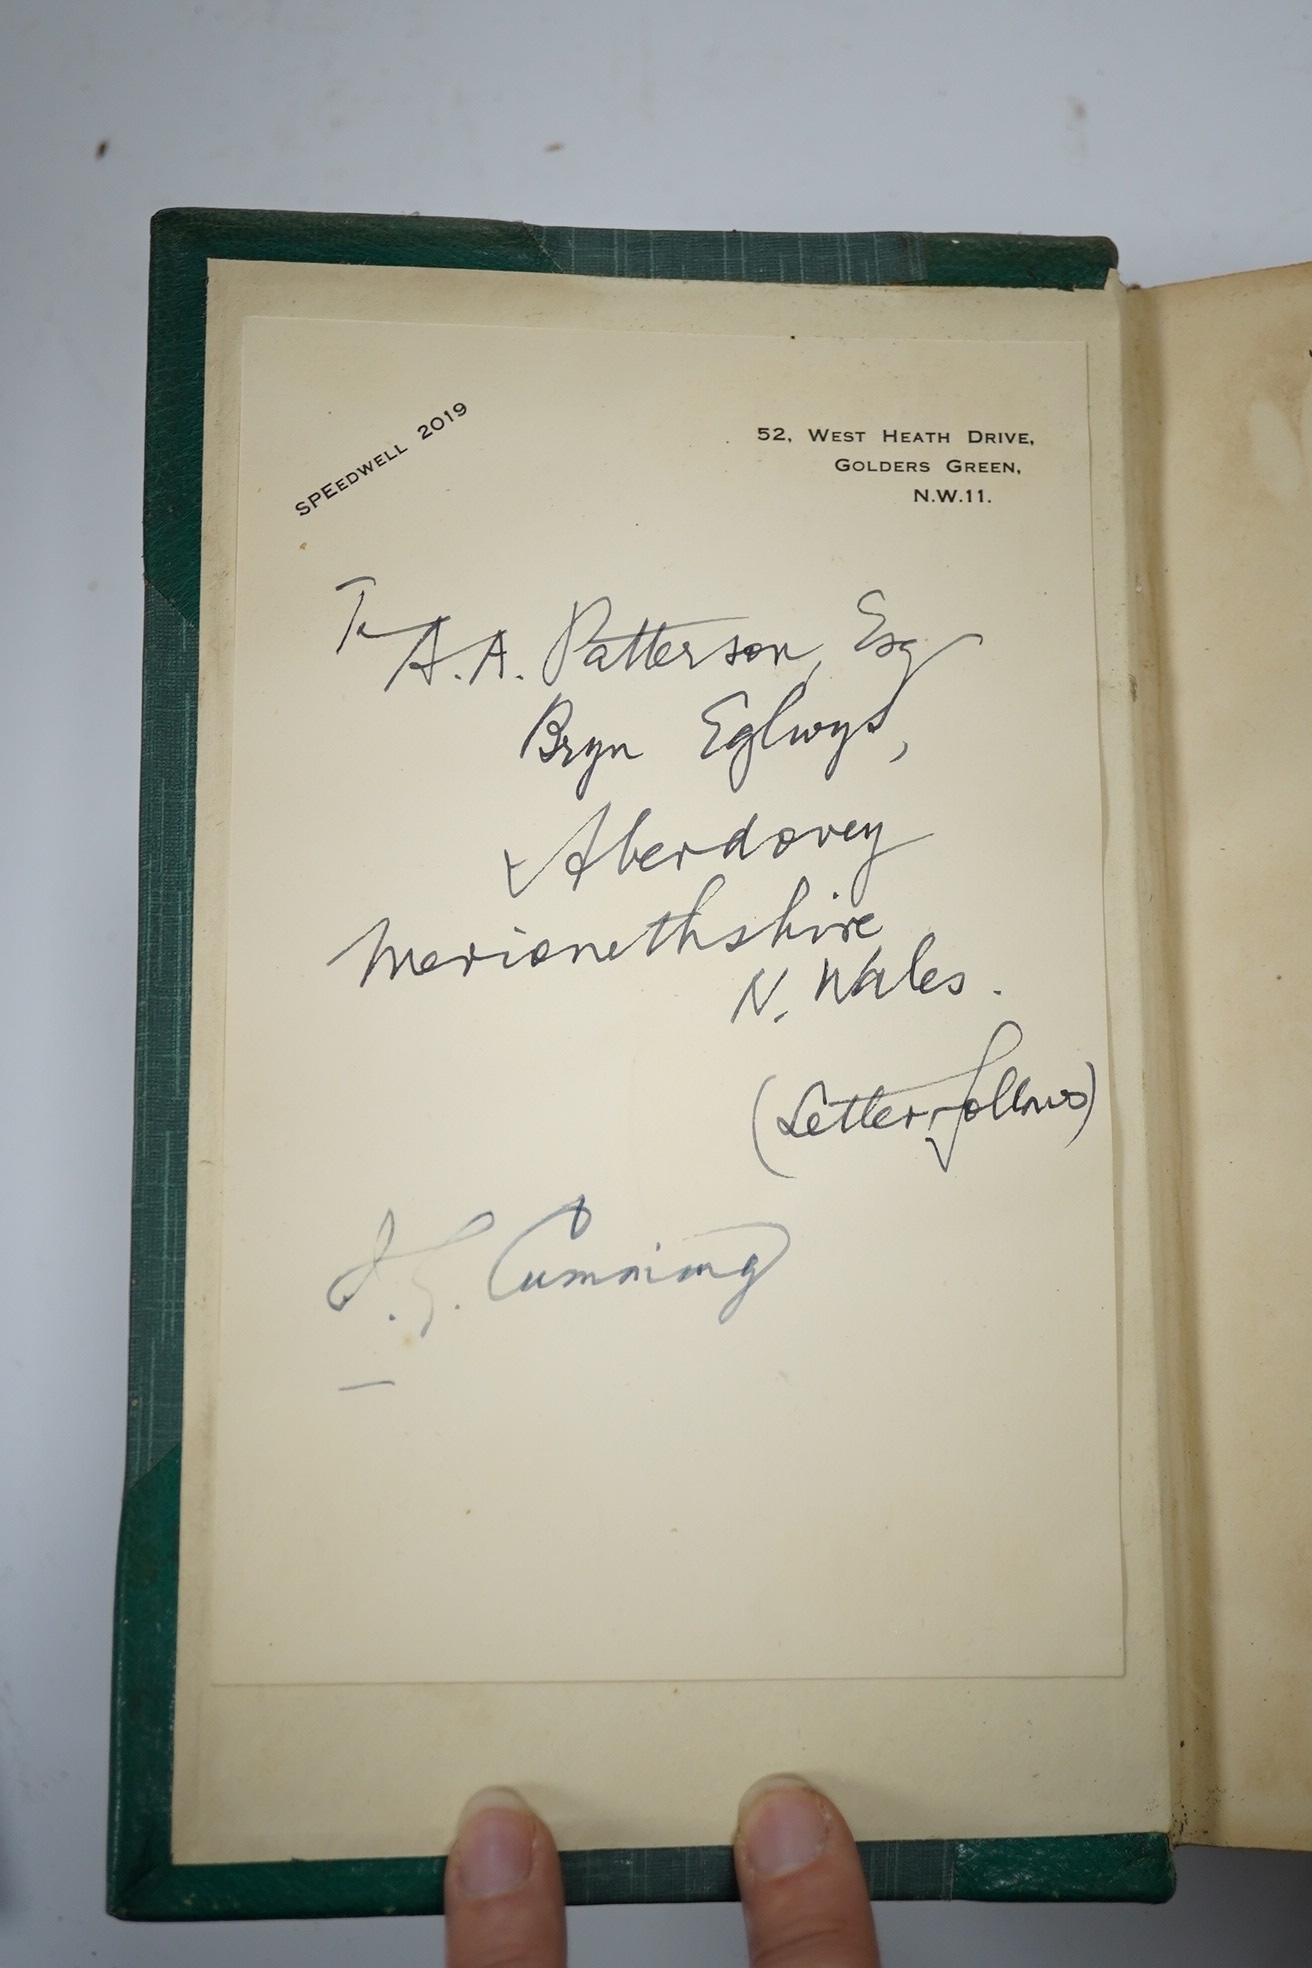 SPEEDWELL 2019
52, WEST HEATH DRIVE,
GOLDERS GREEN,
N.W.11.
To
A.A. Patterson, Esq
Bryn Eglwys,
Aberdovey
Merionethshire
N. Wales.
(Letter follows)
Cumming